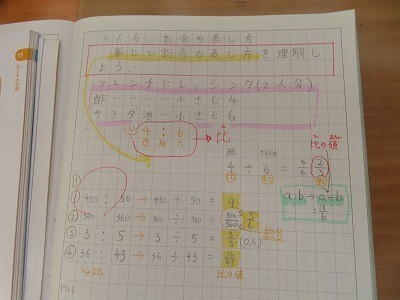 11/6 割合の表し方
新しい割合の表し方を理解し
よう。
フレンチドレッシング(2人分)
酢……………小さじ4
サラダ油……小さじ6
4 : 6 → 比
比の値
酢 サラダ油
4 ÷ 6 = 2/3
a:b → a÷b
= a/b
① 450 : 50 → 450 ÷ 50 = 9
② 300 : 360 → 300 ÷ 360 = 300/360 5/6
③ 3 : 5 → 3 ÷ 5 = 3/5 (0.6) 約分
④ 36 : 43 → 36 ÷ 43 = 36/43
比 比の値